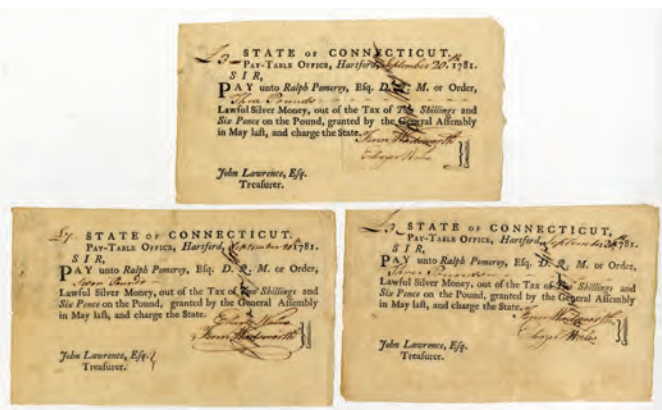 £3 STATE OF CONNECTICUT.
PAY-TABLE OFFICE, Hartford, September 20th 1781.
S I R,
PAY unto Ralph Pomeroy, Esq. D. Q. M. or Order,
Three Pounds
Lawful Silver Money, out of the Tax of Two Shillings and
Six Pence on the Pound, granted by the General Assembly
in May last, and charge the State.
Fenn Wadsworth
John Lawrence, Esq.
Treasurer.
£7 STATE OF CONNECTICUT.
PAY-TABLE OFFICE, Hartford, September 1781.
S I R,
PAY unto Ralph Pomeroy, Esq. D. Q. M. or Order,
Seven Pounds
Lawful Silver Money, out of the Tax of Two Shillings and
Six Pence on the Pound, granted by the General Assembly
in May last, and charge the State.
Eleazr Wales
Fenn Wadsworth
John Lawrence, Esq.
Treasurer.
£3 STATE OF CONNECTICUT,
PAY-TABLE OFFICE, Hartford, September 1781.
S I R,
PAY unto Ralph Pomeroy, Esq. D. Q. M. or Order,
Three Pounds
Lawful Silver Money, out of the Tax of Two Shillings and
Six Pence on the Pound, granted by the General Assembly
in May last, and charge the State.
Fenn Wadsworth
Eleazr Wales
John Lawrence, Esq.
Treasurer.